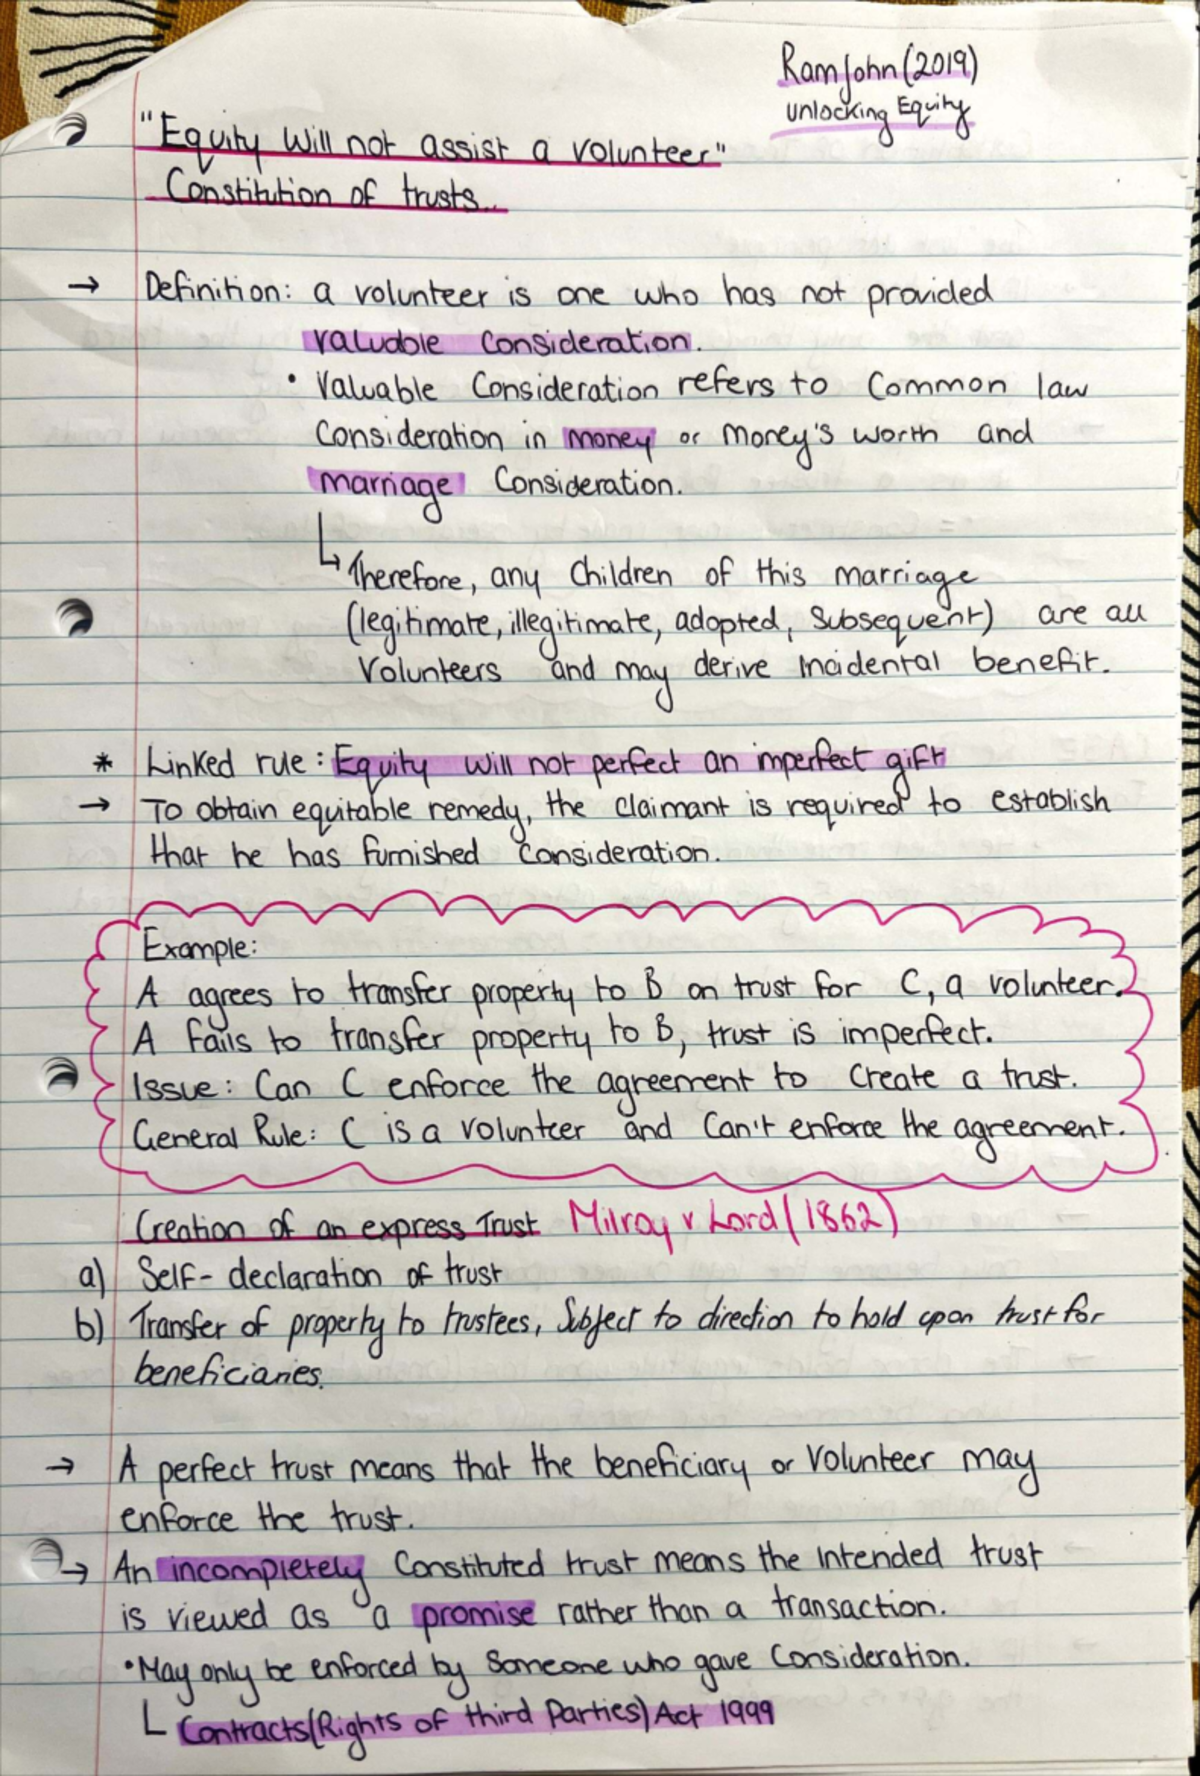 RamJohn (2019)
Unlocking Equity
"Equity will not assist a volunteer"
Constitution of trusts..
→ Definition: a volunteer is one who has not provided
valuable consideration.
• Valuable Consideration refers to Common law
Consideration in money or money's worth and
marriage Consideration.
↳ Therefore, any children of this marriage
(legitimate, illegitimate, adopted, subsequent) are all
Volunteers and may derive incidental benefit.
* Linked rule: Equity will not perfect an imperfect gift
→ To obtain equitable remedy, the claimant is required to establish
that he has furnished consideration.
Example:
A agrees to transfer property to B on trust for C, a volunteer.
A fails to transfer property to B, trust is imperfect.
Issue: Can C enforce the agreement to create a trust.
General Rule: C is a volunteer and can't enforce the agreement.
Creation of an express Trust Milroy v Lord (1862)
a) Self-declaration of trust
b) Transfer of property to trustees, Subject to direction to hold upon trust for
beneficiaries.
→ A perfect trust means that the beneficiary or Volunteer may
enforce the trust.
→ An incompletely Constituted trust means the intended trust
is viewed as a promise rather than a transaction.
• May only be enforced by Someone who gave Consideration.
L Contracts (Rights of third Parties) Act 1999